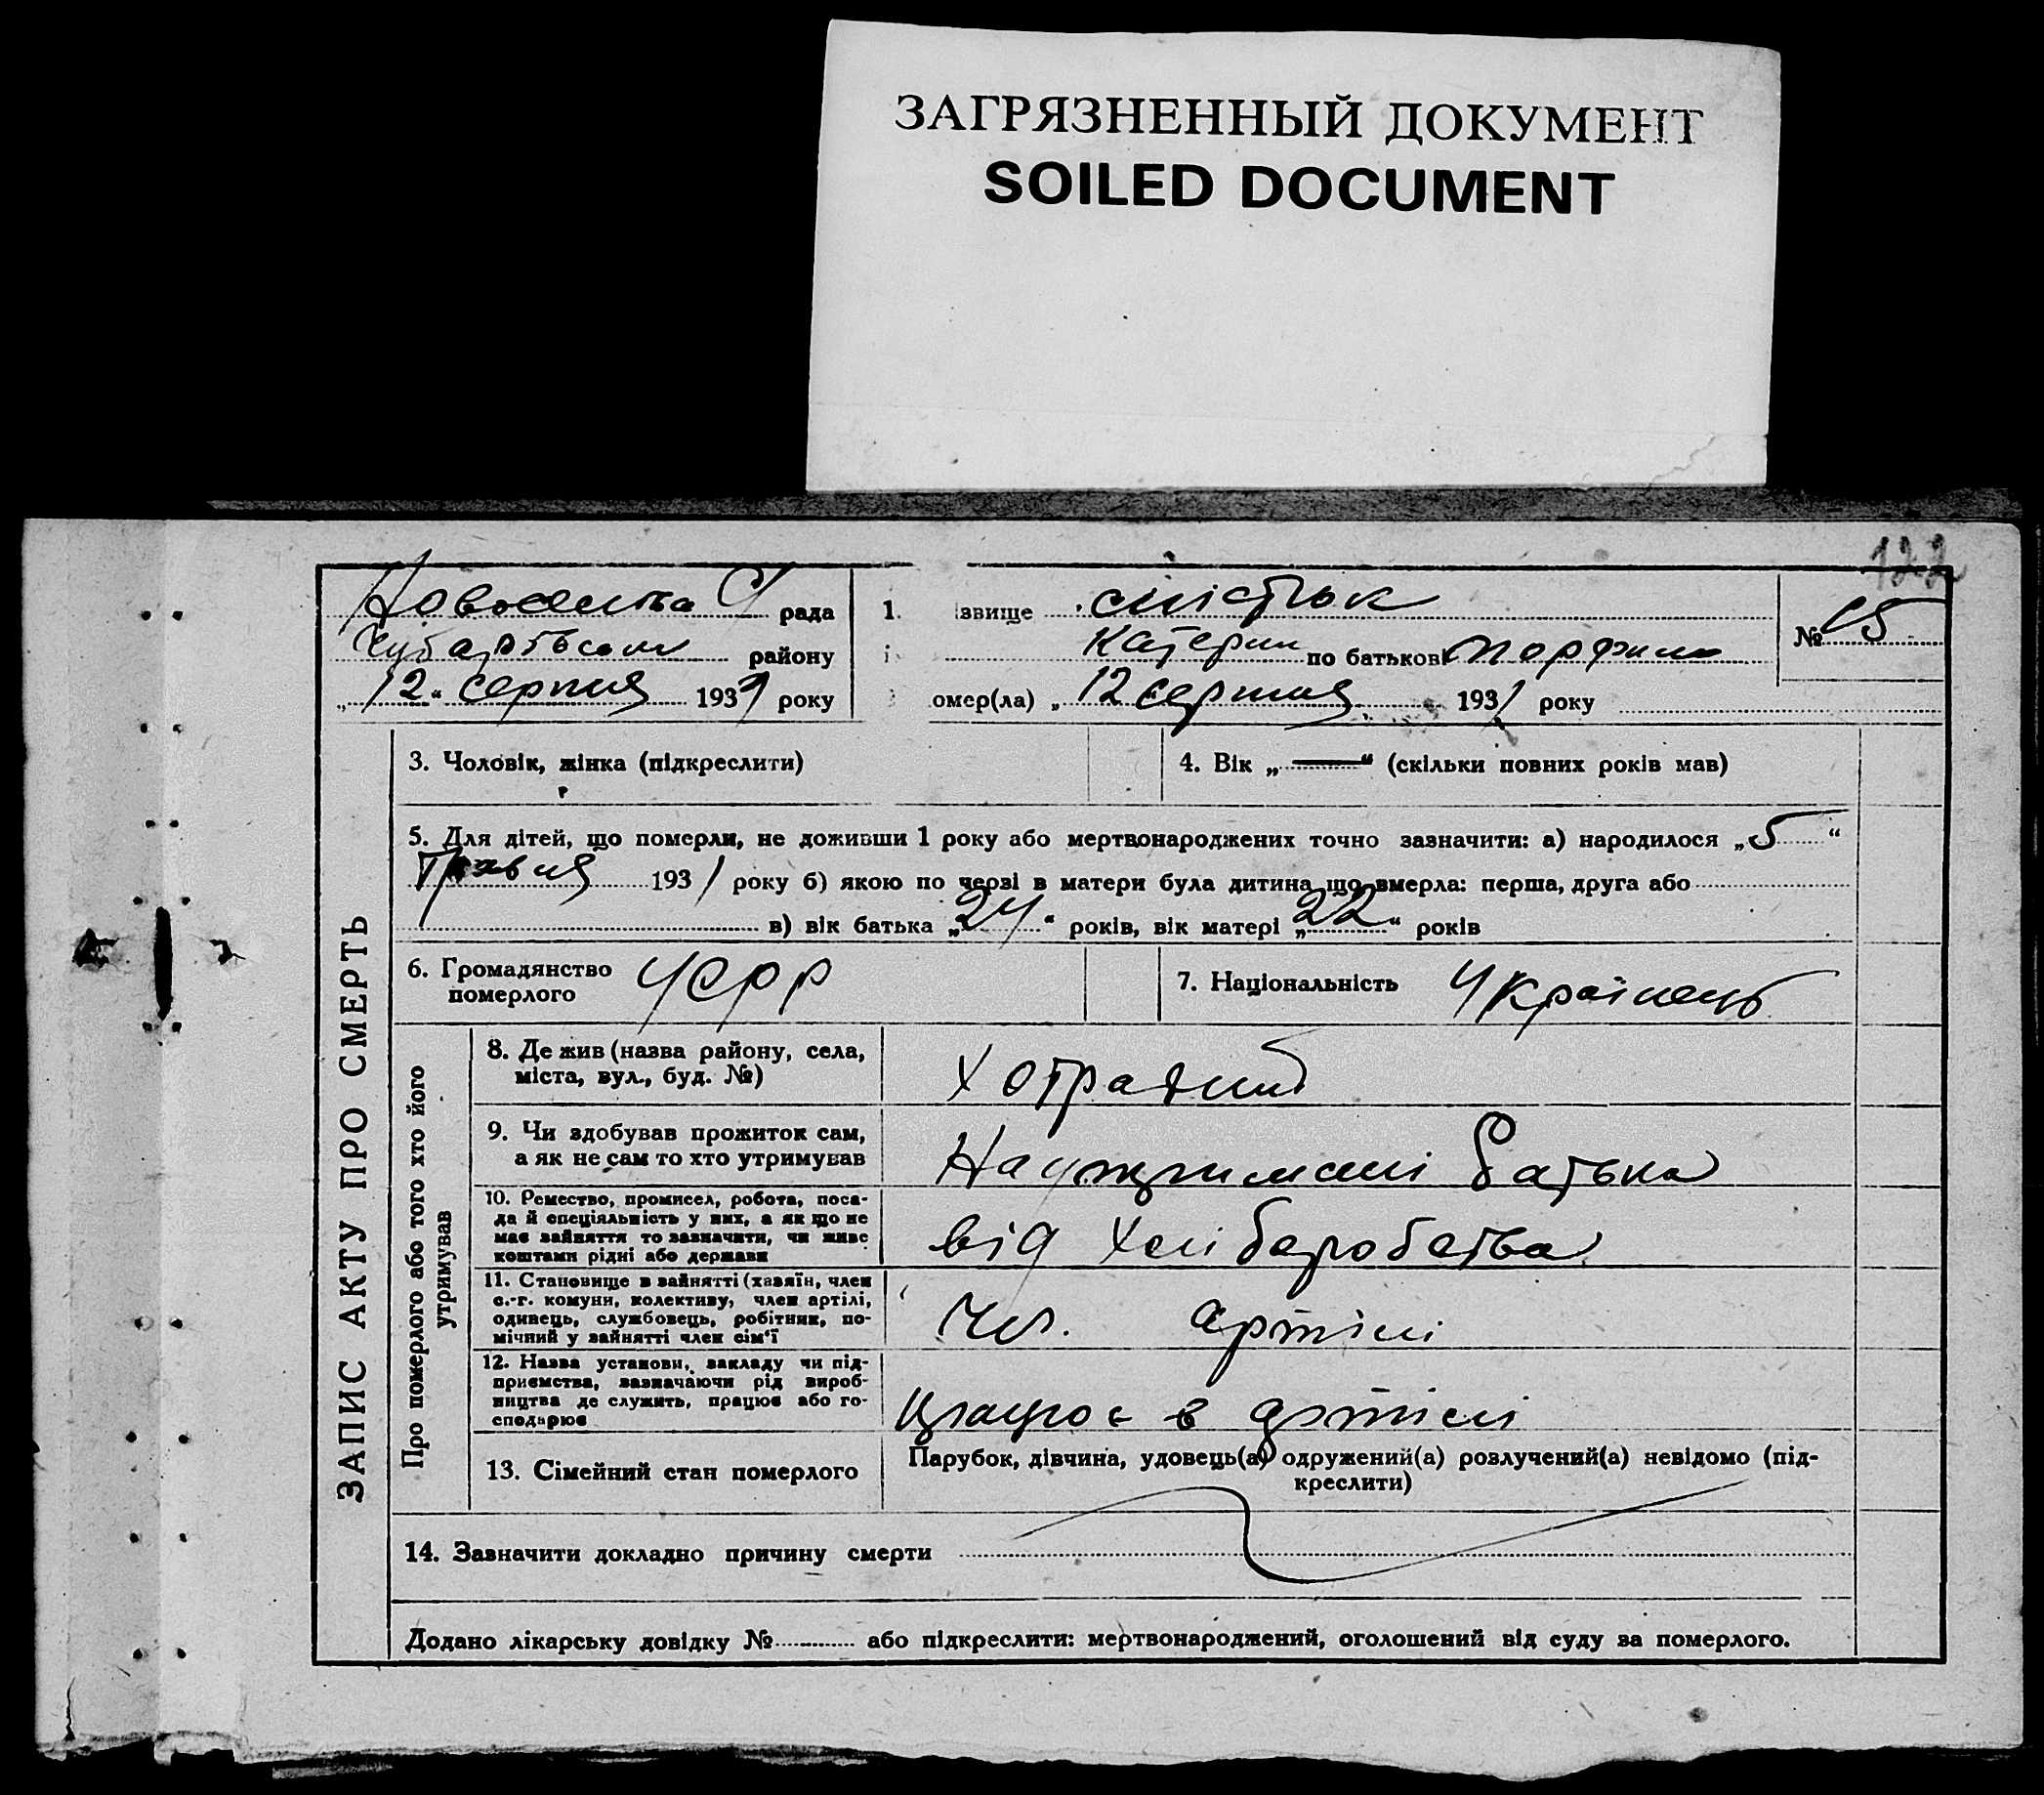 ЗАГРЯЗНЕННЫЙ ДОКУМЕНТ
SOILED DOCUMENT
122
рада
району
„12“ серпня 1931 року
1. ізвище
Катерин по батькові
омер(ла) „12 серпня 1931 року
№ 15
ЗАПИС АКТУ ПРО СМЕРТЬ
3. Чоловік, жінка (підкреслити)
4. Вік „—“ (скільки повних років мав)
5. Для дітей, що померли, не доживши 1 року або мертвонароджених точно зазначити: а) народилося „5“
Травня 1931 року б) якою по черзі в матери була дитина що вмерла: перша, друга або
в) вік батька „24“ років, вік матері „22“ років
6. Громадянство
померлого
УСРР
7. Національність Українець
Про померлого або того хто його
утримував
8. Де жив (назва району, села,
міста, вул., буд. №)
9. Чи здобував прожиток сам,
а як не сам то хто утримував
На утримані батька
10. Ремество, промисел, робота, поса-
да й спеціяльність у них, а як що не
має зайняття то зазначити, чи живе
коштами рідні або держави
від хліборобства
11. Становище в зайнятті (хазяїн, член
с.-г. комуни, колективу, член артілі,
одинець, службовець, робітник, по-
мічний у зайнятті член сім'ї
Чл. артілі
12. Назва установи, закладу чи під-
приємства, зазначаючи рід вироб-
ництва де служить, працює або го-
сподарює
працює в артілі
13. Сімейний стан померлого
Парубок, дівчина, удовець(а) одружений(а) розлучений(а) невідомо (під-
креслити)
14. Зазначити докладно причину смерти
Додано лікарську довідку № або підкреслити: мертвонароджений, оголошений від суду за померлого.